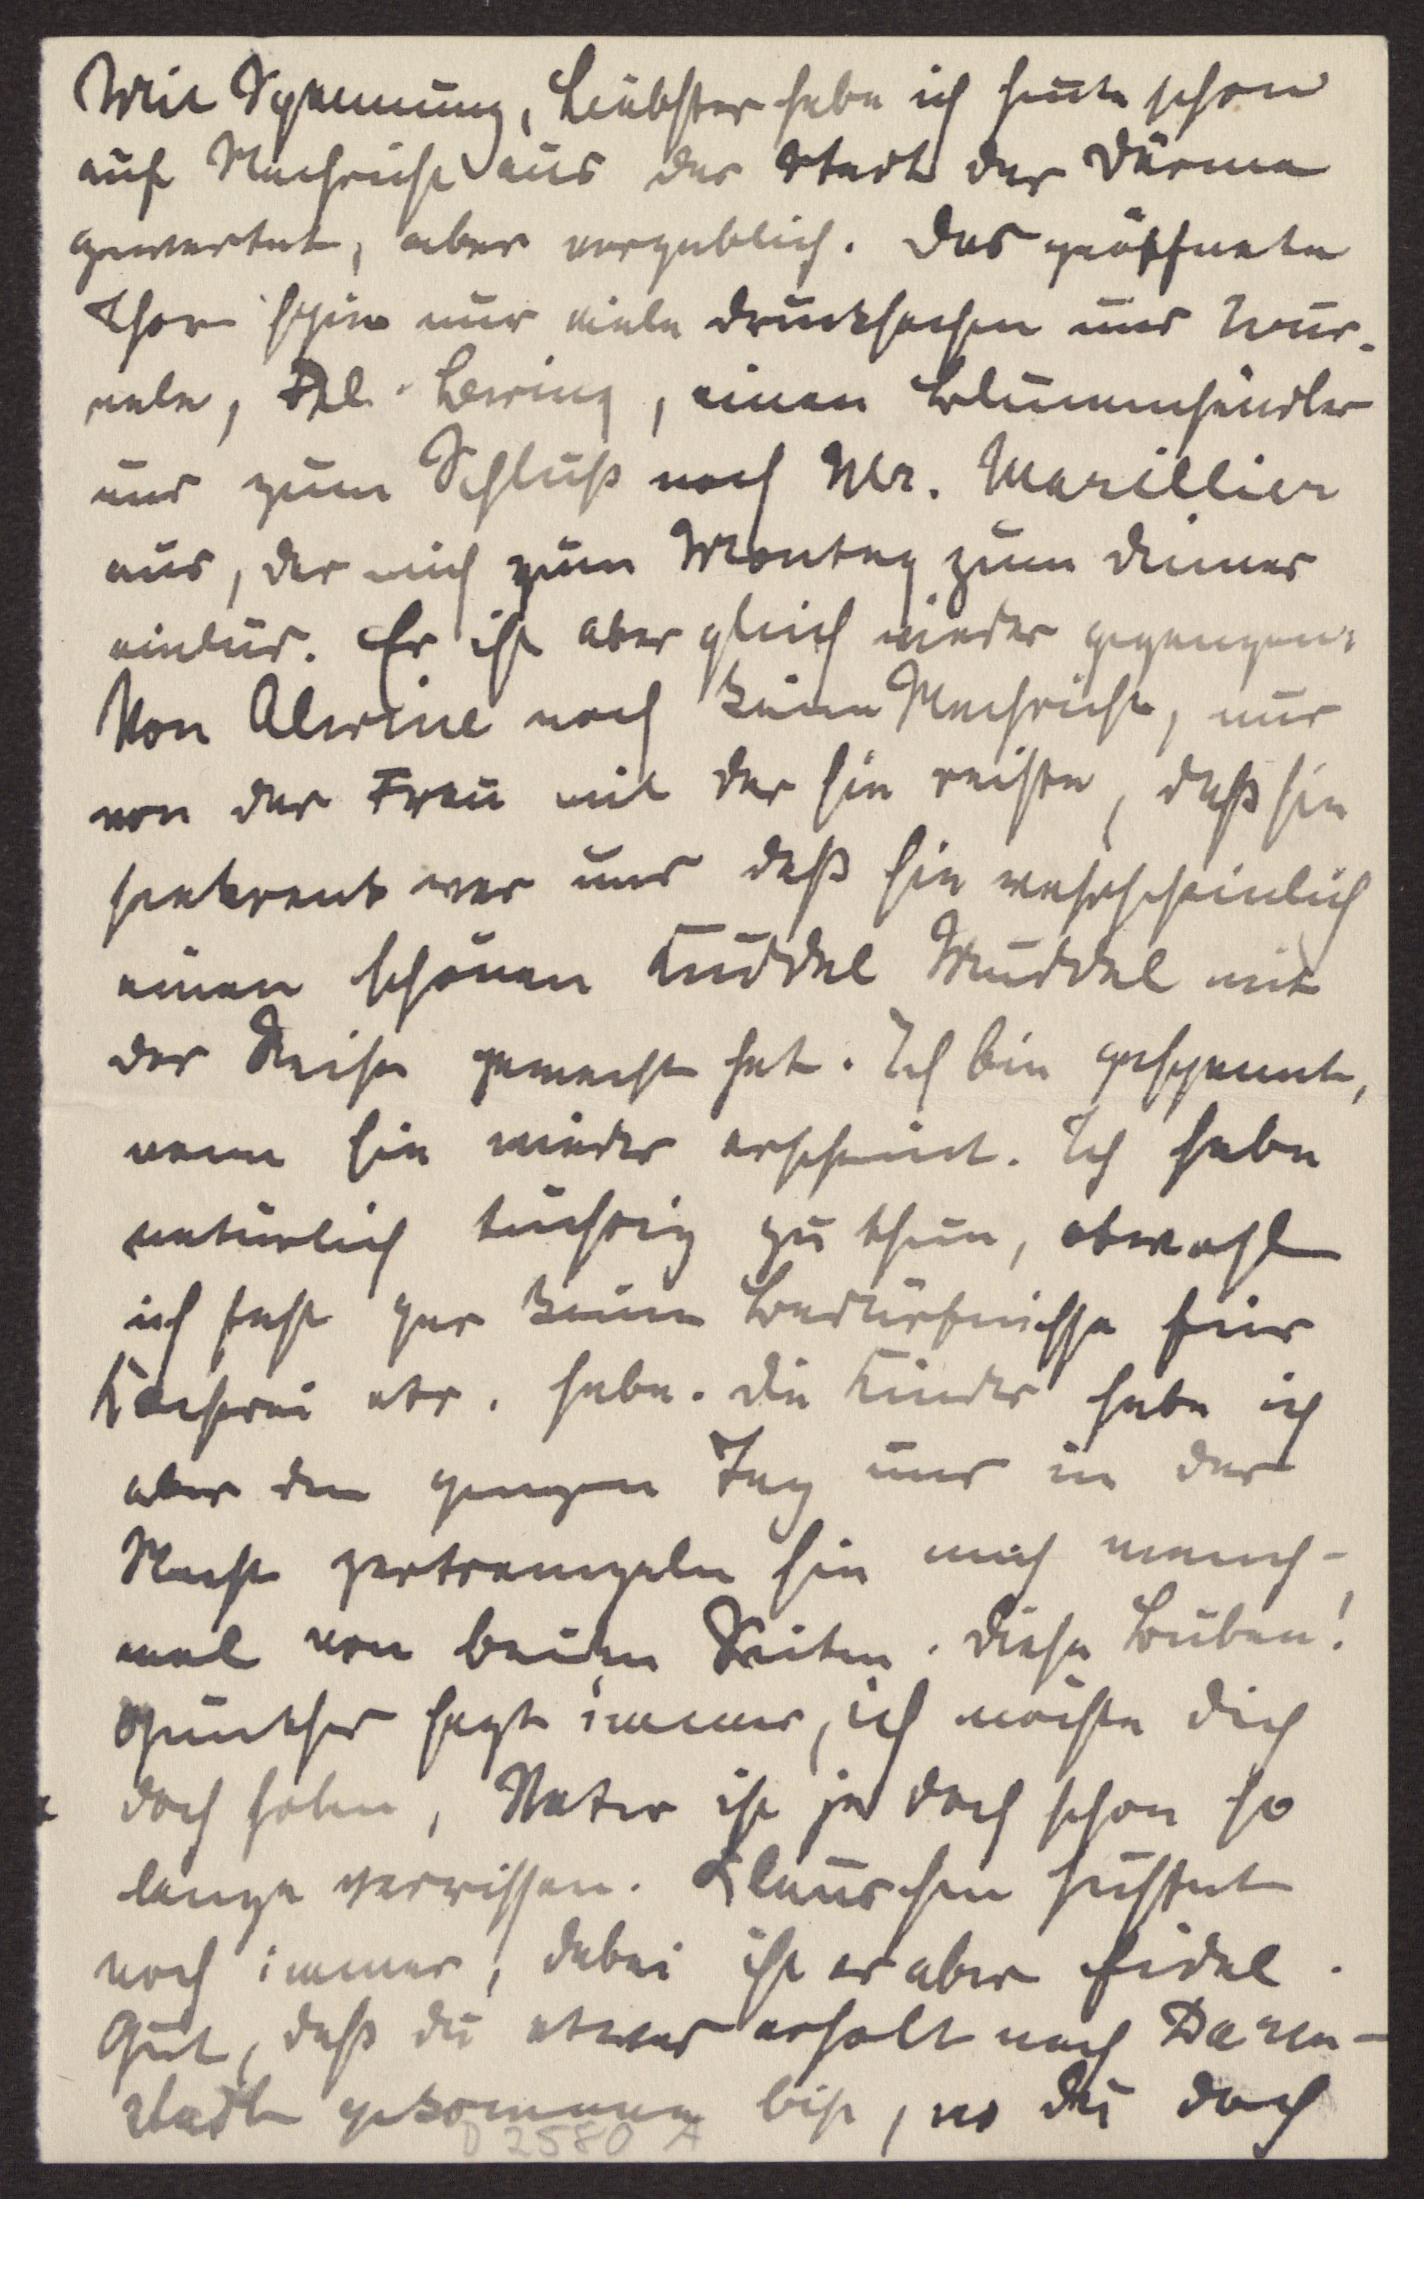 Mit Spannung, Liebster habe ich heute schon
auf Nachricht aus der Stadt der Därme
gewartet, aber vergeblich. Das geöffnete
Thor spie nur viele Drucksachen und
Frl. Bering, einen Blumenhändler
und zum Schluß noch Mr. Marillier
aus, der mich zum Montag zum Dinner
einlud. Er ist aber gleich wieder gegangen.
Von Alwine noch keine Nachricht, nur
von der Frau mit der sie reiste, daß sie
seekrank war und daß sie wahrscheinlich
einen schönen Kuddel Muddel mit
der Reise gemacht hat. Ich bin gespannt,
wann sie wieder erscheint. Ich habe
natürlich tüchtig zu thun, obwohl
ich fast gar keine Bedürfnisse für
Kocherei etc. habe. Die Kinder habe ich
aber den ganzen Tag und in der
Nacht zertrampeln sie mich manch-
mal von beiden Seiten. Diese Buben!
Günther sagt immer, ich möchte dich
doch holen, Vater ist ja doch schon so
lange verrissen. Kläuschen hustet
noch immer, dabei ist er aber fidel.
Gut, daß du etwas erholt nach Darm-
stadt gekommen bist, wo du doch
D 2580 A